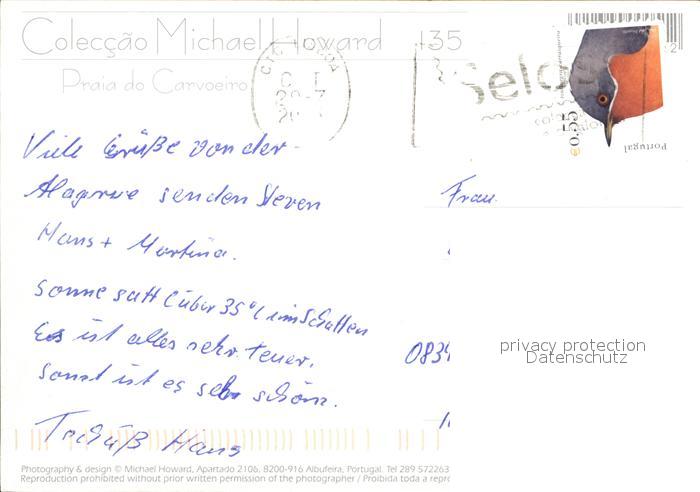 Colecção Michael Howard 135
Praia do Carvoeiro
Selo
Portugal
Viele Grüße von der
Alagarve senden Steven
Hans + Martina.
Sonne satt (über 35°C im Schatten
Es ist alles sehr teuer,
sonst ist es sehr schön.
Tschüß Hans
Frau
0834
privacy protection
Datenschutz
Photography & design © Michael Howard, Apartado 2106, 8200-916 Albufeira, Portugal. Tel 289 572263
Reproduction prohibited without prior written permission of the photographer / Proibida toda a repro